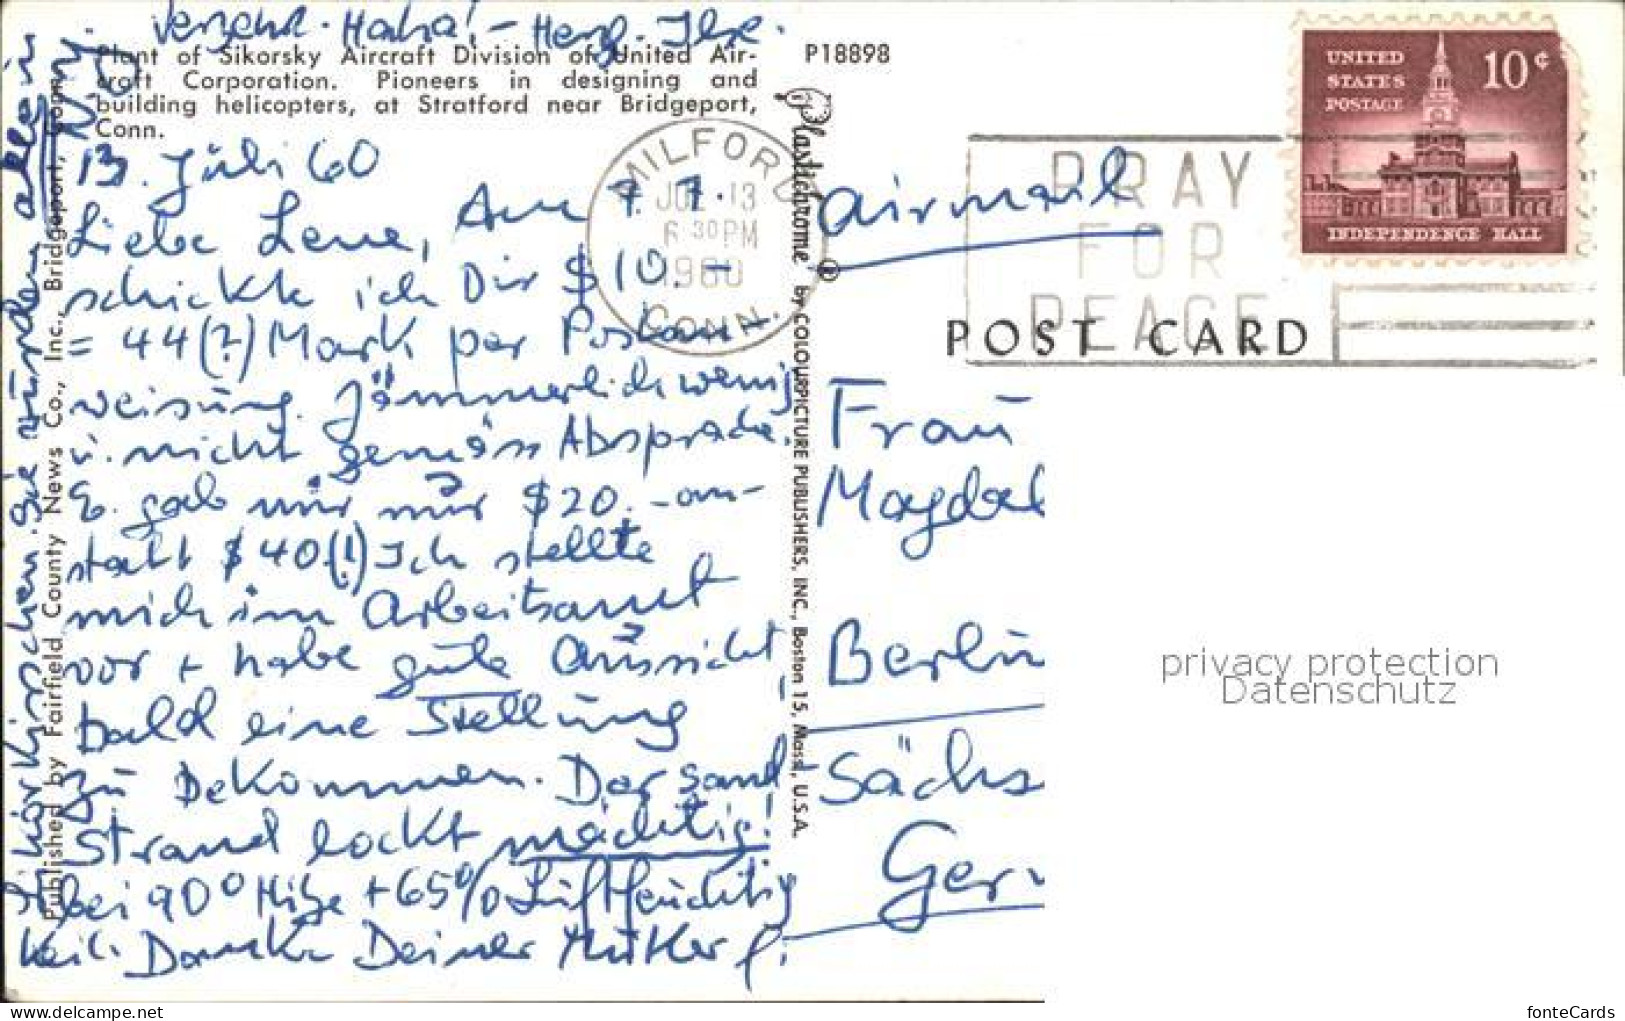 verzehrt. Haha! – Herzl. Ilse.
Plant of Sikorsky Aircraft Division of United Air-
craft Corporation. Pioneers in designing and
building helicopters, at Stratford near Bridgeport,
Conn.
P18898
13. Juli 60
Liebe Lene, Am 7. 7.
schickte ich Dir $10.–
= 44(?) Mark per Postan-
weisung. Jämmerlich wenig
u. nicht gemäss Absprache.
E. gab mir nur $20.– an-
statt $40(!) Ich stellte
mich im Arbeitsamt
vor + habe gute Aussicht
bald eine Stellung
zu bekommen. Der Sand-
strand lockt mächtig!
bei 90° Hitze + 65% Luftfeuchtig
keit. Danke Deiner Mutter f.
Kirschen. Sie würden allein
Published by Fairfield County News Co., Inc., Bridgeport, Conn.
Plastichrome ® by COLOURPICTURE PUBLISHERS, INC., Boston 15, Mass., U.S.A.
MILFORD
JUL 13
6 30 PM
1960
CONN.
PRAY
FOR
PEACE
UNITED
STATES
POSTAGE
10¢
INDEPENDENCE HALL
airmail
POST CARD
Frau
Magdal
Berlin
Sächs
Ger
privacy protection
Datenschutz
www.delcampe.net
fonteCards